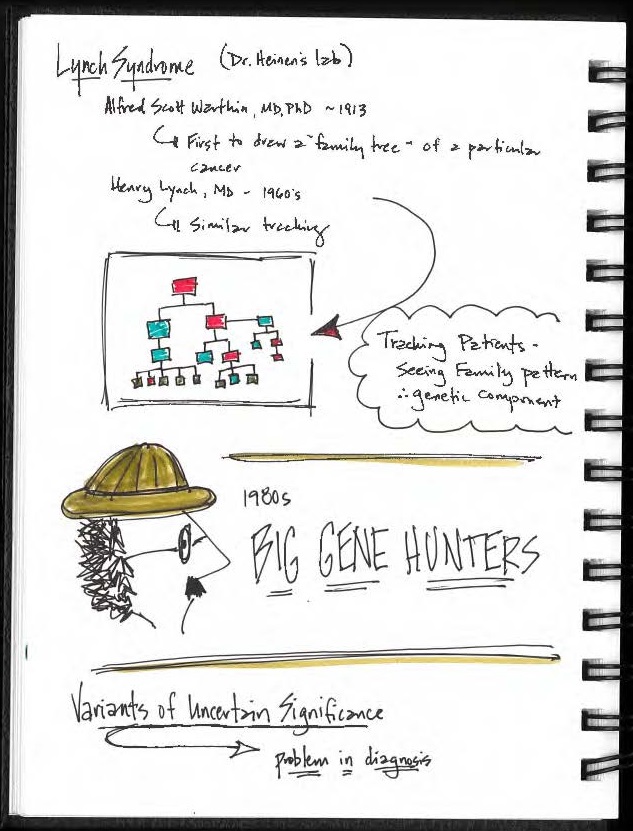 Lynch Syndrome (Dr. Heinen's lab)
Alfred Scott Warthin, MD, PhD ~1913
First to draw a "family tree" of a particular
cancer
Henry Lynch, MD - 1960's
Similar tracking
Tracking Patients -
Seeing Family pattern
∴ genetic component
1980s
BIG GENE HUNTERS
Variants of Uncertain Significance
problem in diagnosis